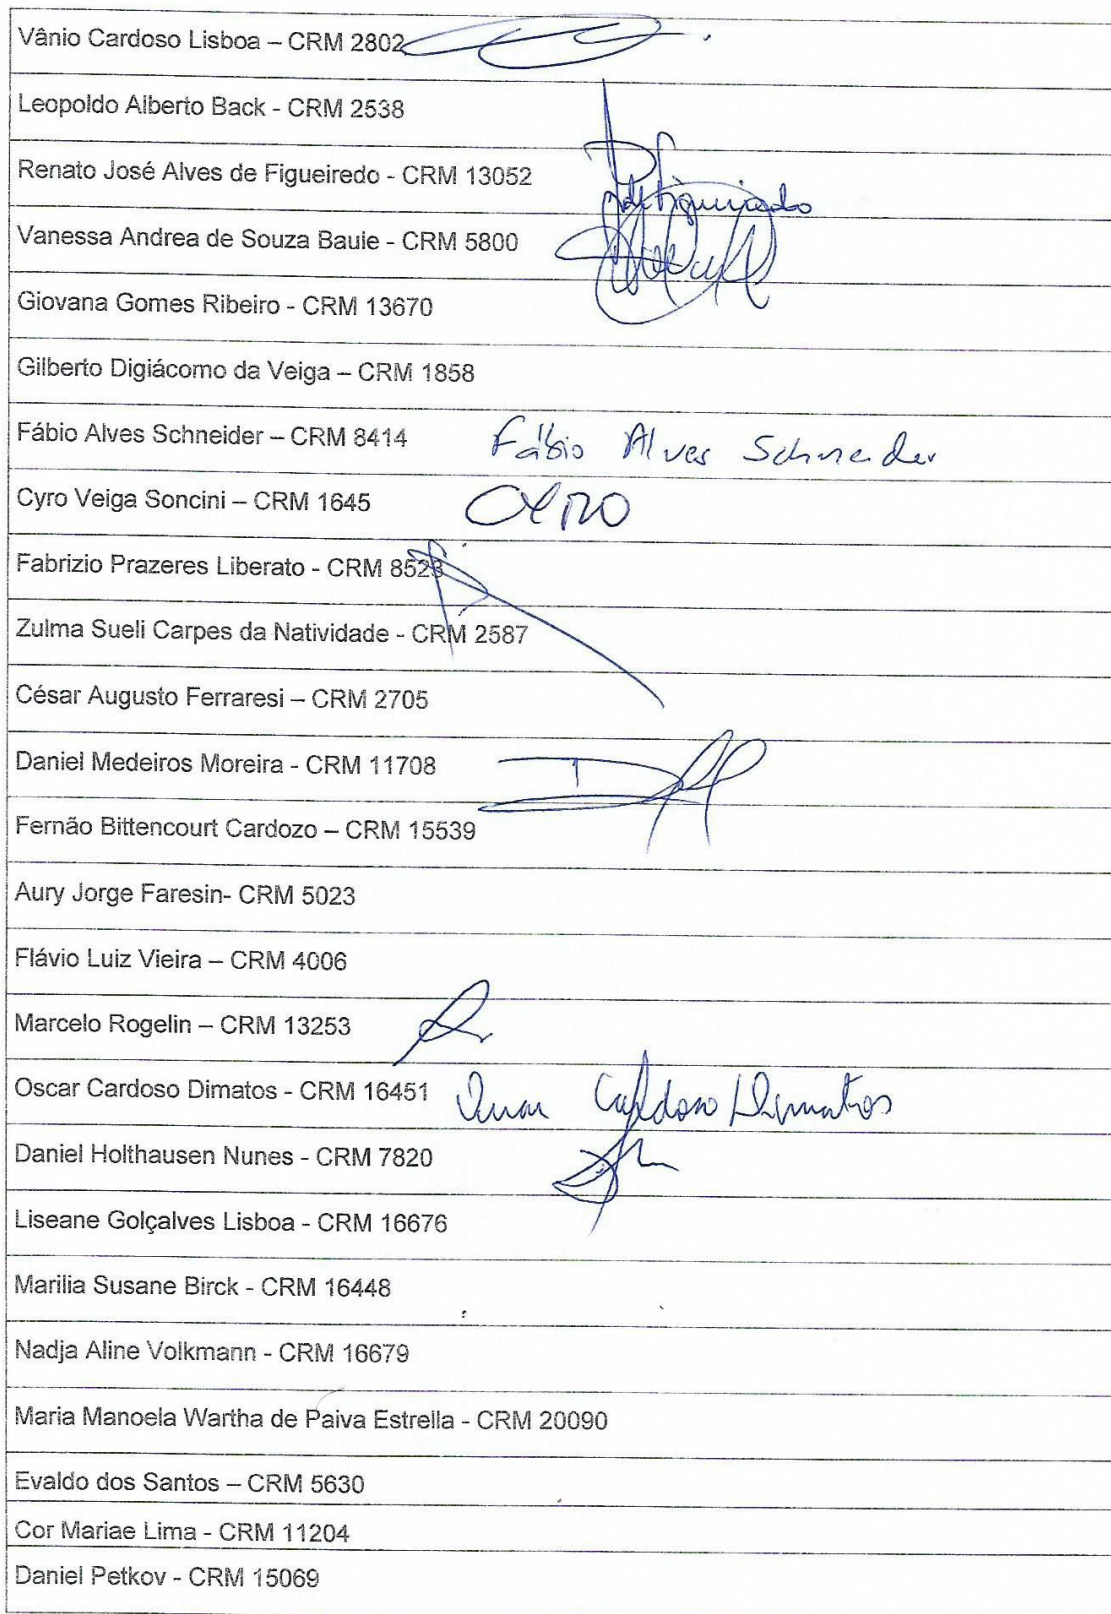 Vânio Cardoso Lisboa – CRM 2802
Leopoldo Alberto Back - CRM 2538
Renato José Alves de Figueiredo - CRM 13052
Vanessa Andrea de Souza Baule - CRM 5800
Giovana Gomes Ribeiro - CRM 13670
Gilberto Digiácomo da Veiga – CRM 1858
Fábio Alves Schneider – CRM 8414 Fábio Alves Schneider
Cyro Veiga Soncini – CRM 1645 CYRO
Fabrizio Prazeres Liberato - CRM 8523
Zulma Sueli Carpes da Natividade - CRM 2587
César Augusto Ferraresi – CRM 2705
Daniel Medeiros Moreira - CRM 11708
Fernão Bittencourt Cardozo – CRM 15539
Aury Jorge Faresin- CRM 5023
Flávio Luiz Vieira – CRM 4006
Marcelo Rogelin – CRM 13253
Oscar Cardoso Dimatos - CRM 16451 Oscar Cardoso Dimatos
Daniel Holthausen Nunes - CRM 7820
Liseane Golçalves Lisboa - CRM 16676
Marilia Susane Birck - CRM 16448
Nadja Aline Volkmann - CRM 16679
Maria Manoela Wartha de Paiva Estrella - CRM 20090
Evaldo dos Santos – CRM 5630
Cor Mariae Lima - CRM 11204
Daniel Petkov - CRM 15069